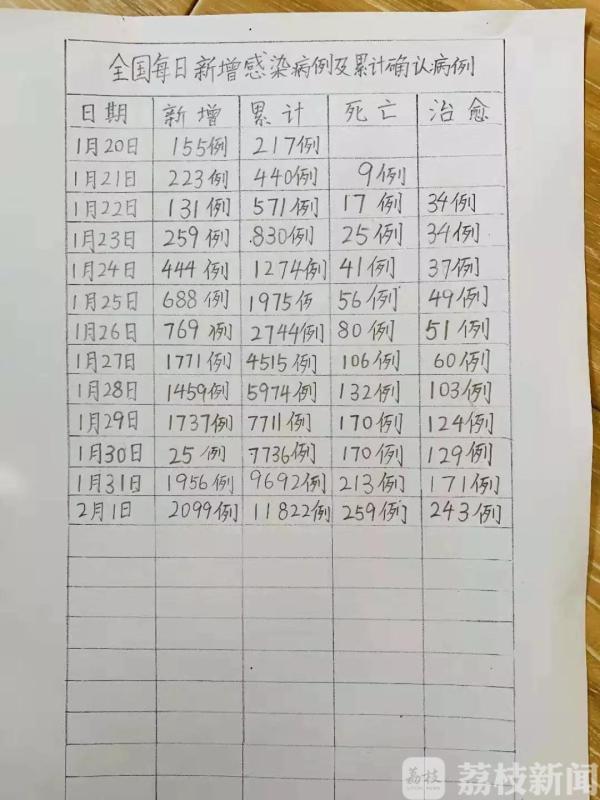 全国每日新增感染病例及累计确认病例
日期 新增 累计 死亡 治愈
1月20日 155例 217例
1月21日 223例 440例 9例
1月22日 131例 571例 17例 34例
1月23日 259例 830例 25例 34例
1月24日 444例 1274例 41例 37例
1月25日 688例 1975例 56例 49例
1月26日 769例 2744例 80例 51例
1月27日 1771例 4515例 106例 60例
1月28日 1459例 5974例 132例 103例
1月29日 1737例 7711例 170例 124例
1月30日 25例 7736例 170例 129例
1月31日 1956例 9692例 213例 171例
2月1日 2099例 11822例 259例 243例
荔枝 荔枝新闻